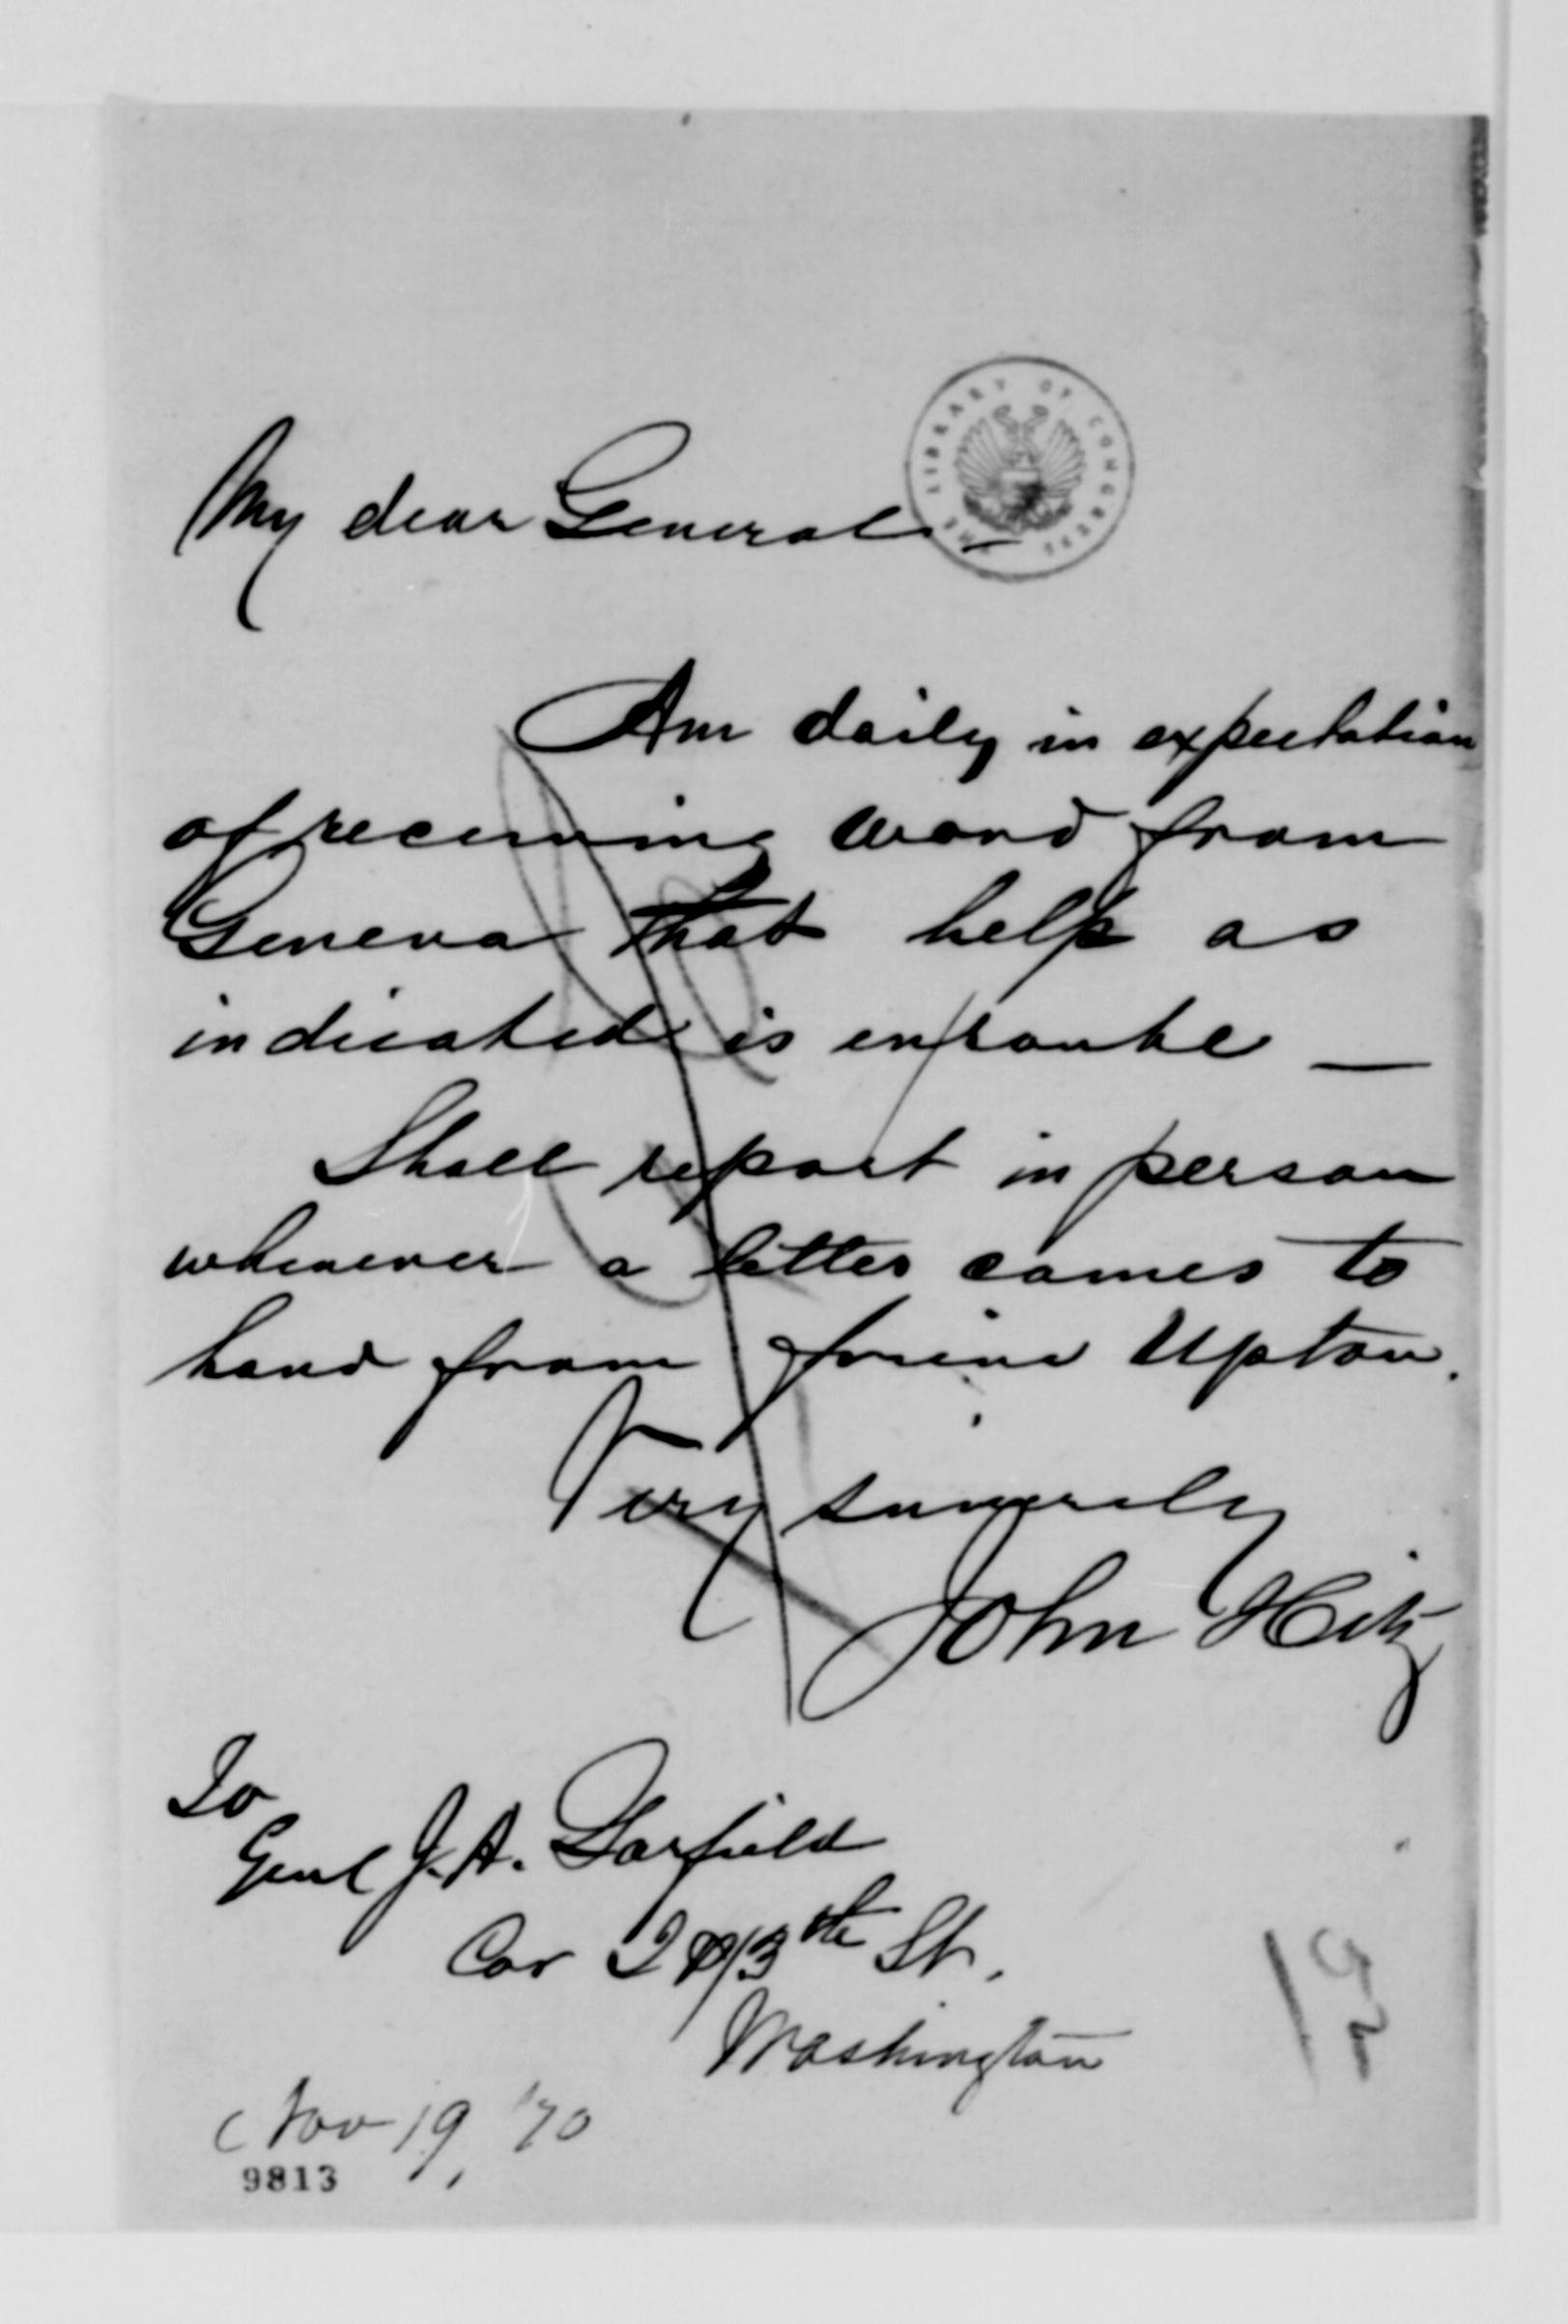 My dear General –
THE LIBRARY OF CONGRESS
Am daily in expectation
of receiving word from
Geneva that help as
indicated is enroute —
Shall report in person
whenever a letter comes to
hand from friend Upton.
Very sincerely
John Hitz
To
Genl J. A. Garfield
Cor I & 13th St.
Washington
Nov 19, '70
9813
52